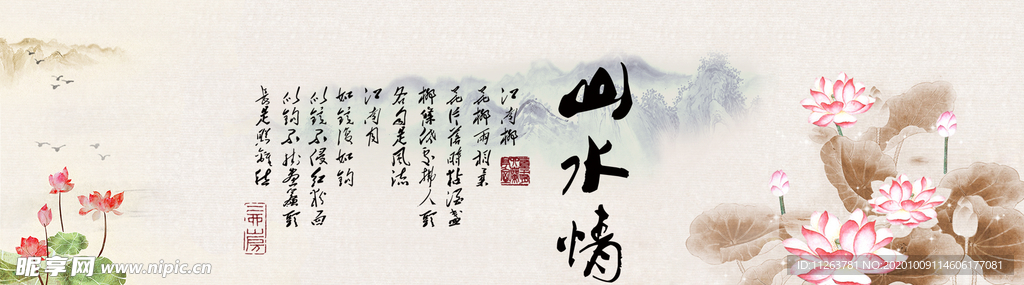 山水情
江南柳
花柳两相柔
花片落时黏酒盏
柳条低处拂人头
各自是风流
江南月
如镜复如钩
似镜不侵红粉面
似钩不挂画帘头
长是照离愁
昵享网 www.nipic.cn
ID:11263781 NO:20201009114606177081